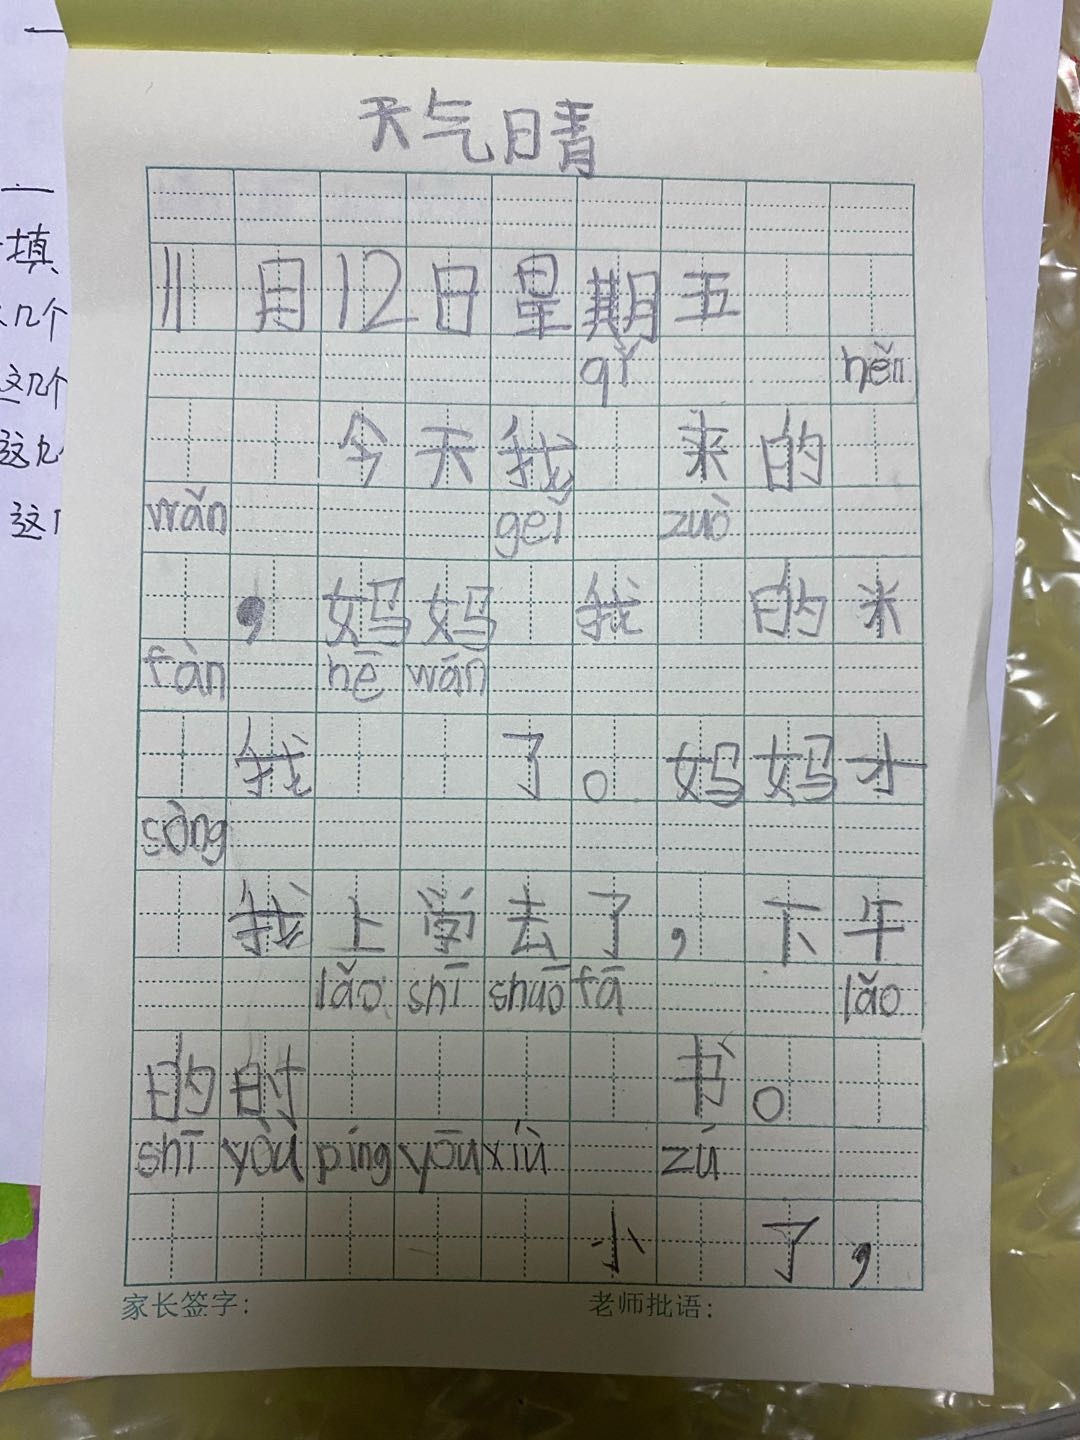 天气日青
11月12日星期五
qǐ hěn
今天我 来的
wǎn geǐ zuò
，妈妈 我 的米
fàn hē wán
我 了。妈妈才
sòng
我上学去了，下午
lǎo shī shuō fā lǎo
的时 书。
shī yòu píng yōu xiù zú
小 了，
家长签字： 老师批语：
填
几个
这几个
这几
这